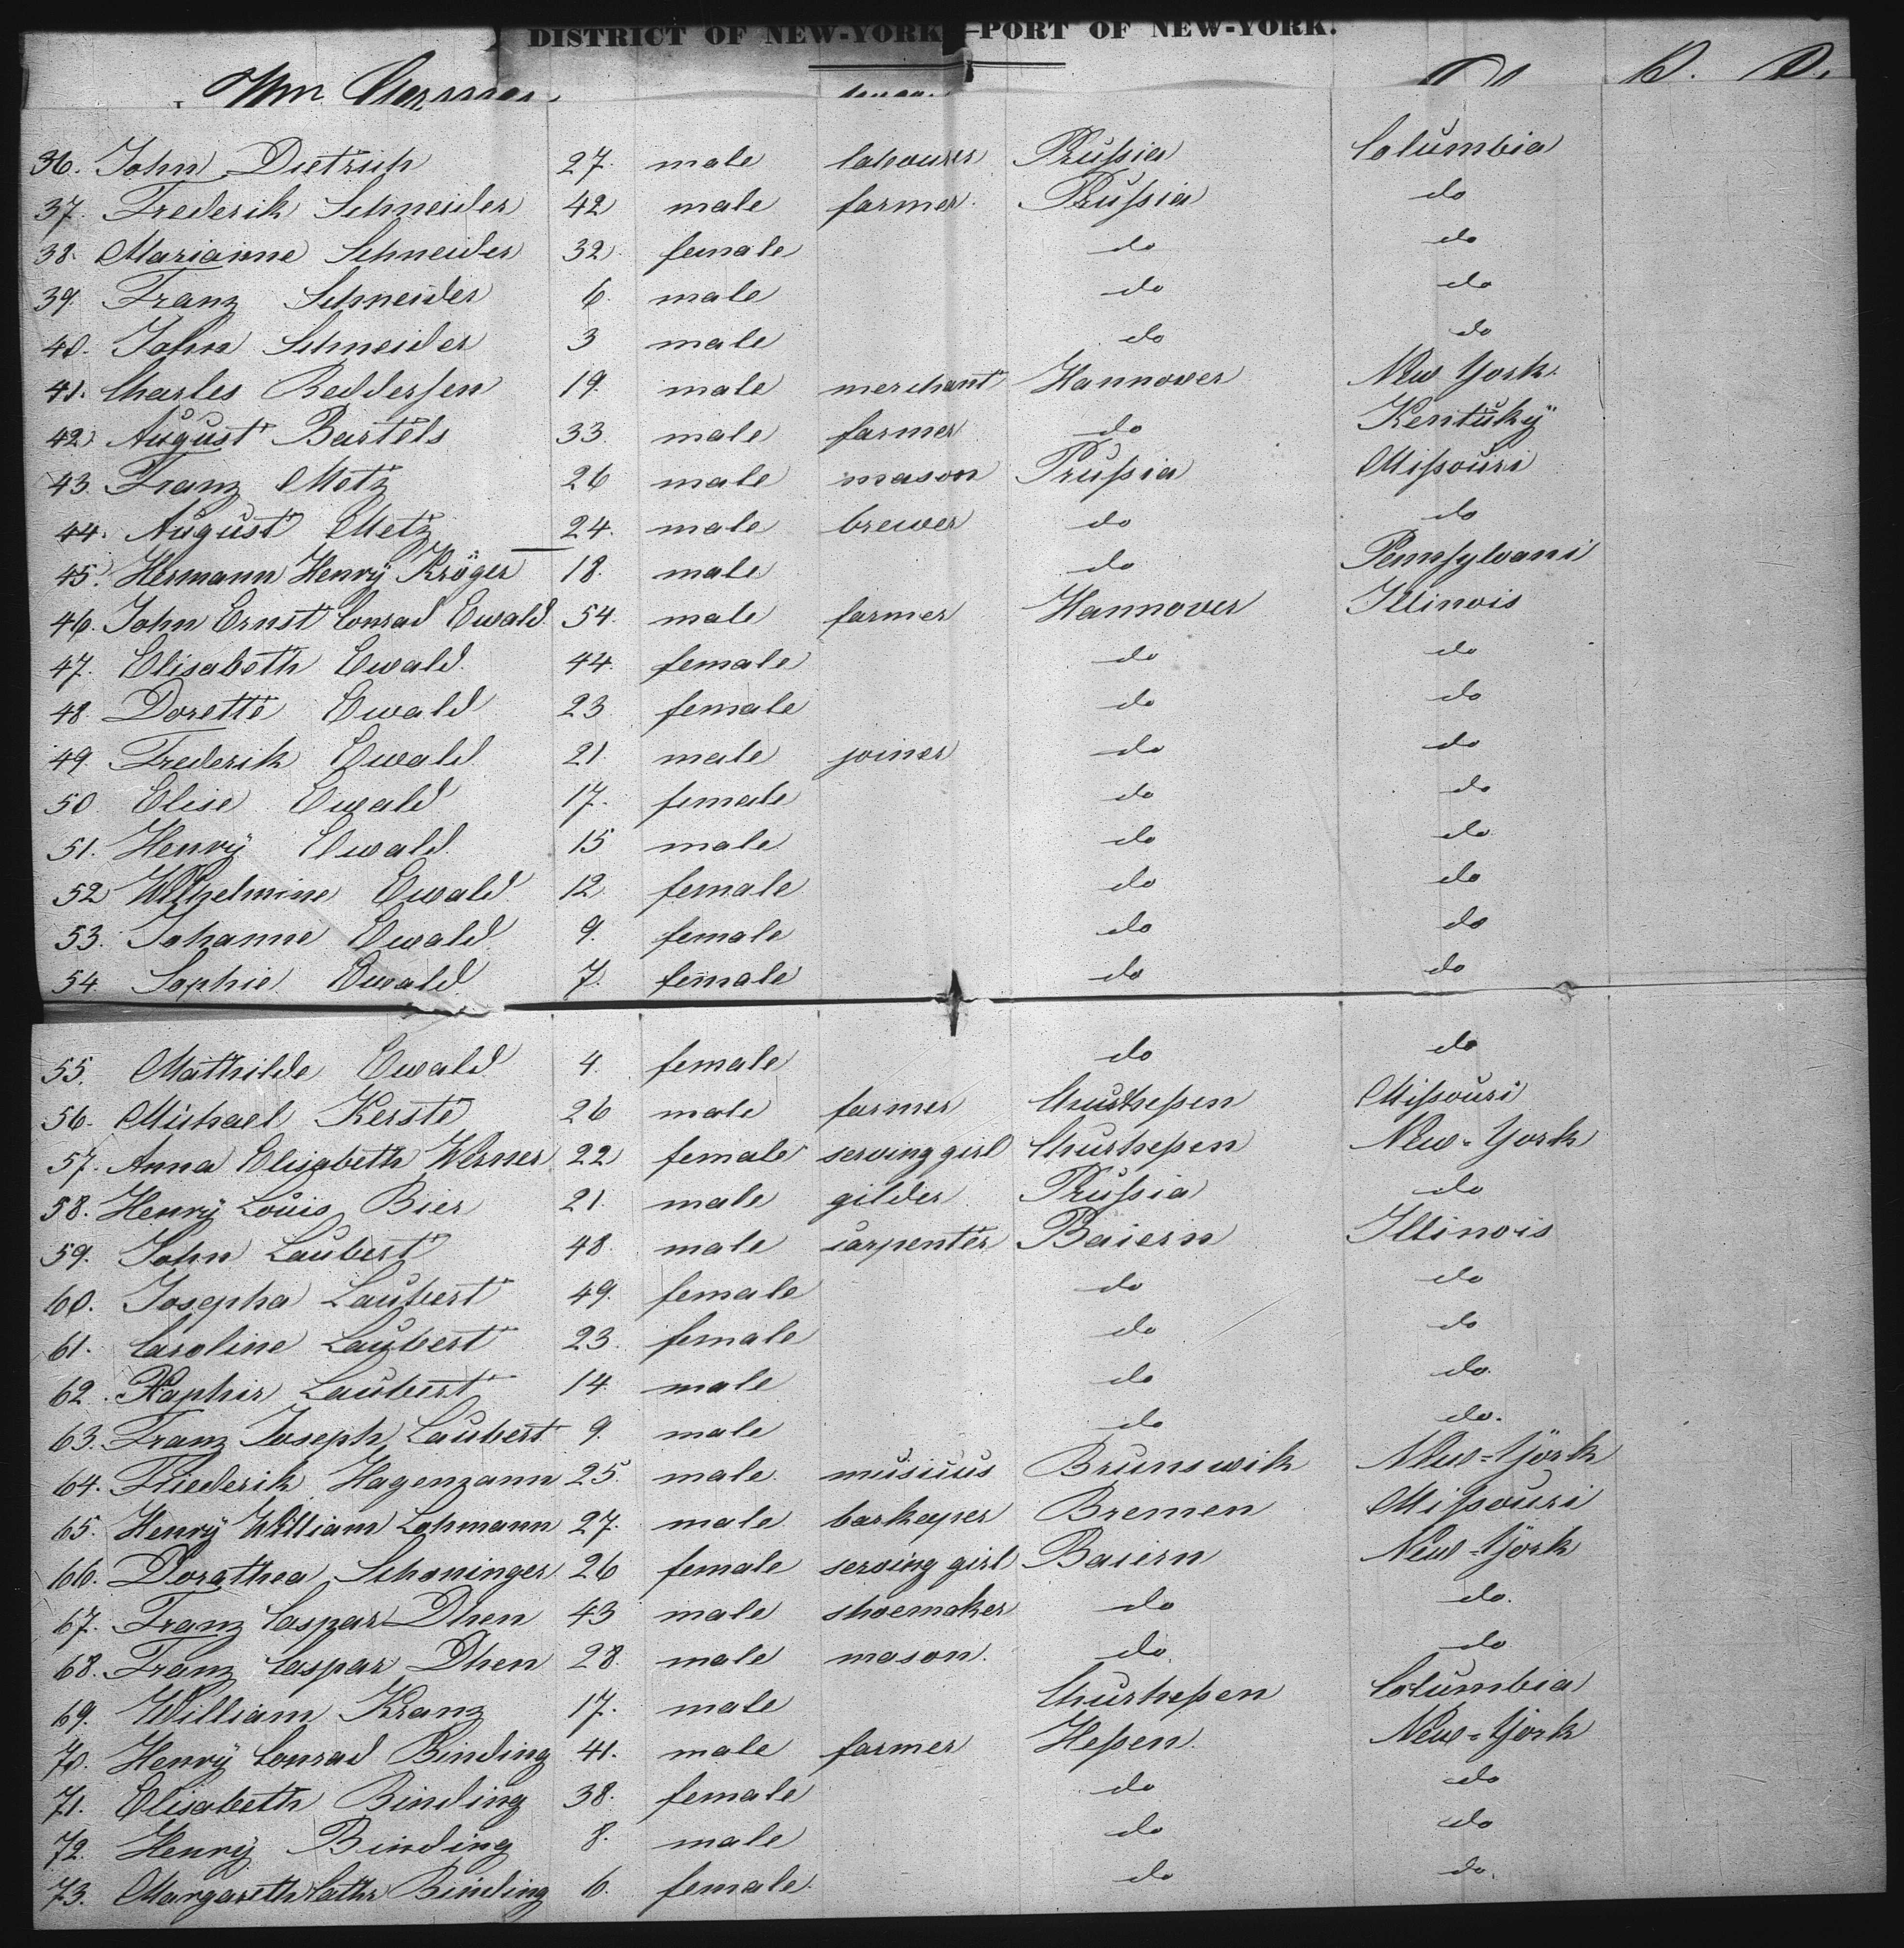 DISTRICT OF NEW-YORK—PORT OF NEW-YORK.
36. John Dietrich 27. male labourer Prußia Columbia
37. Frederik Schneider 42 male farmer. Prußia do
38. Marianne Schneider 32. female do do
39. Franz Schneider 6. male do do
40. John Schneider 3 male do do
41. Charles Reddersen 19. male merchant Hannover New York.
42. August Bartels 33. male farmer do Kentuky
43. Franz Metz 26 male mason Prußia Mißouri
44. August Metz 24. male brewer do do
45. Hermann Henry Kröger 18. male do Pennsylvani
46. John Ernst Conrad Ewald 54. male farmer Hannover Illinois
47. Elisabeth Ewald. 44. female do do
48. Dorette Ewald 23. female do do
49. Frederik Ewald 21. male joiner do do
50 Elise Ewald 17. female do do
51. Henry Ewald. 15 male do do
52 Wilhelmine Ewald 12. female do do
53. Johanne Ewald 9. female do do
54. Sophie Ewald 7. female do do
55. Mathilde Ewald 4. female do do
56. Michael Kerste 26 male farmer Churheßen Mißouri
57. Anna Elisabeth Werner 22 female serving girl Churheßen New-York
58. Henry Louis Bier 21. male gilder Prußia do
59. John Laubert 48. male carpenter Baiern Illinois
60. Josepha Laubert 49. female do do
61. Caroline Laubert 23. female do do
62. Laubert 14. male do do.
63. Franz Joseph Laubert 9. male do do.
64. Friederik Hagemann 25. male. musicus Brunswik New-York
65. Henry William Lohmann 27. male barkeeper Bremen Mißouri
66. Dorathea Schoninger 26 female serving girl Baiern New-York
67. Franz Caspar Dhen 43 male shoemaker do do.
68. Franz Caspar Dhen 28. male mason. do. do
69. William Kranz 17. male Churheßen Columbia
70. Henry Conrad Binding 41. male farmer Heßen. New-York
71. Elisabeth Binding 38. female do do
72. Henry Binding 8. male do do
73. Margareth Cathr Binding 6. female. do do.